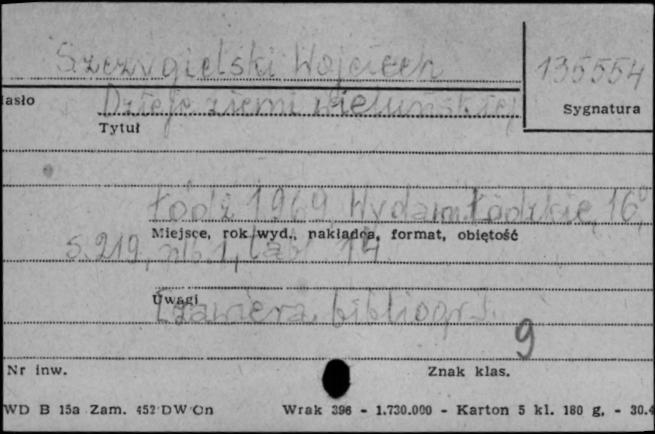 Szczygielski Wojciech
135554
asło
Dzieje ziemi wieluńskiej
Sygnatura
Tytuł
Łódź 1969, Wydawn. Łódzkie, 16°,
Miejsce, rok wyd., nakładca, format, objętość
s. 219, nlb. 1, tabl. 14.
Uwagi
[zawiera bibliogr].
9
Nr inw.
Znak klas.
WD B 15a Zam. 452 DW Cn
Wrak 396 - 1.730.000 - Karton 5 kl. 180 g, - 30.4